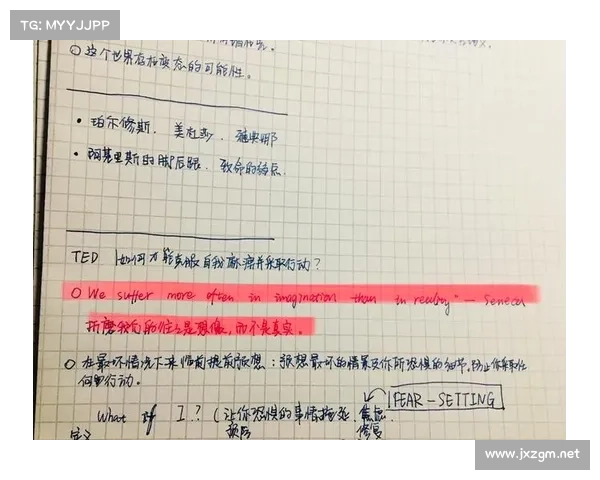 TG: MYYJJPP
○ 这个世界存在变态的可能性。
• 珀尔修斯、美杜莎、雅典娜
• 阿基里斯的脚后跟、致命的弱点.
TED 如何才能克服自我麻痹并采取行动?
○ We suffer more often in imagination than in reality" — Seneca
折磨我们的往往是想像,而不是真实。
○ 在最坏情况下来临前提前预想:预想最坏的情景及你所恐惧的细节,防止你采取任
何里行动。
FEAR-SETTING
What if I...? (让你恐惧的事情 焦虑.
定义 预防 修复
www.jxzgm.net